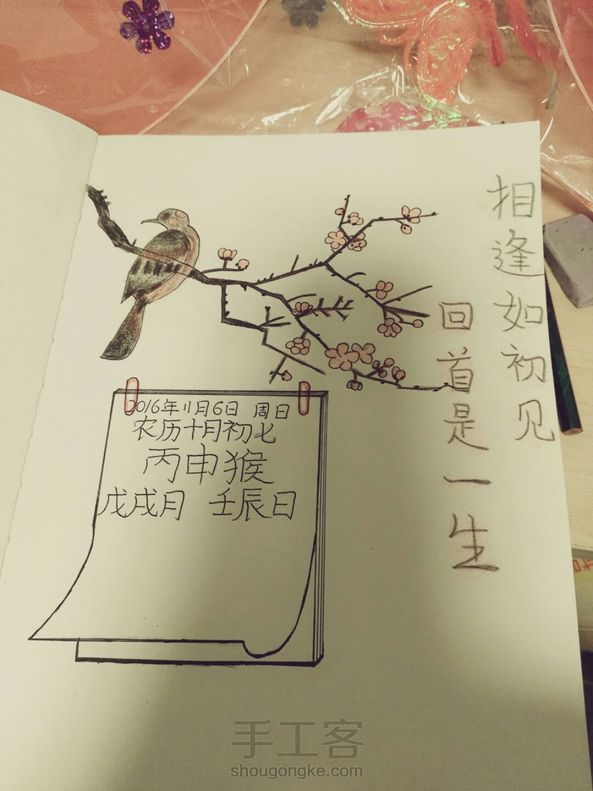 相逢如初见
回首是一生
2016年11月6日 周日
农历十月初七
丙申猴
戊戌月 壬辰日
手工客
shougongke.com